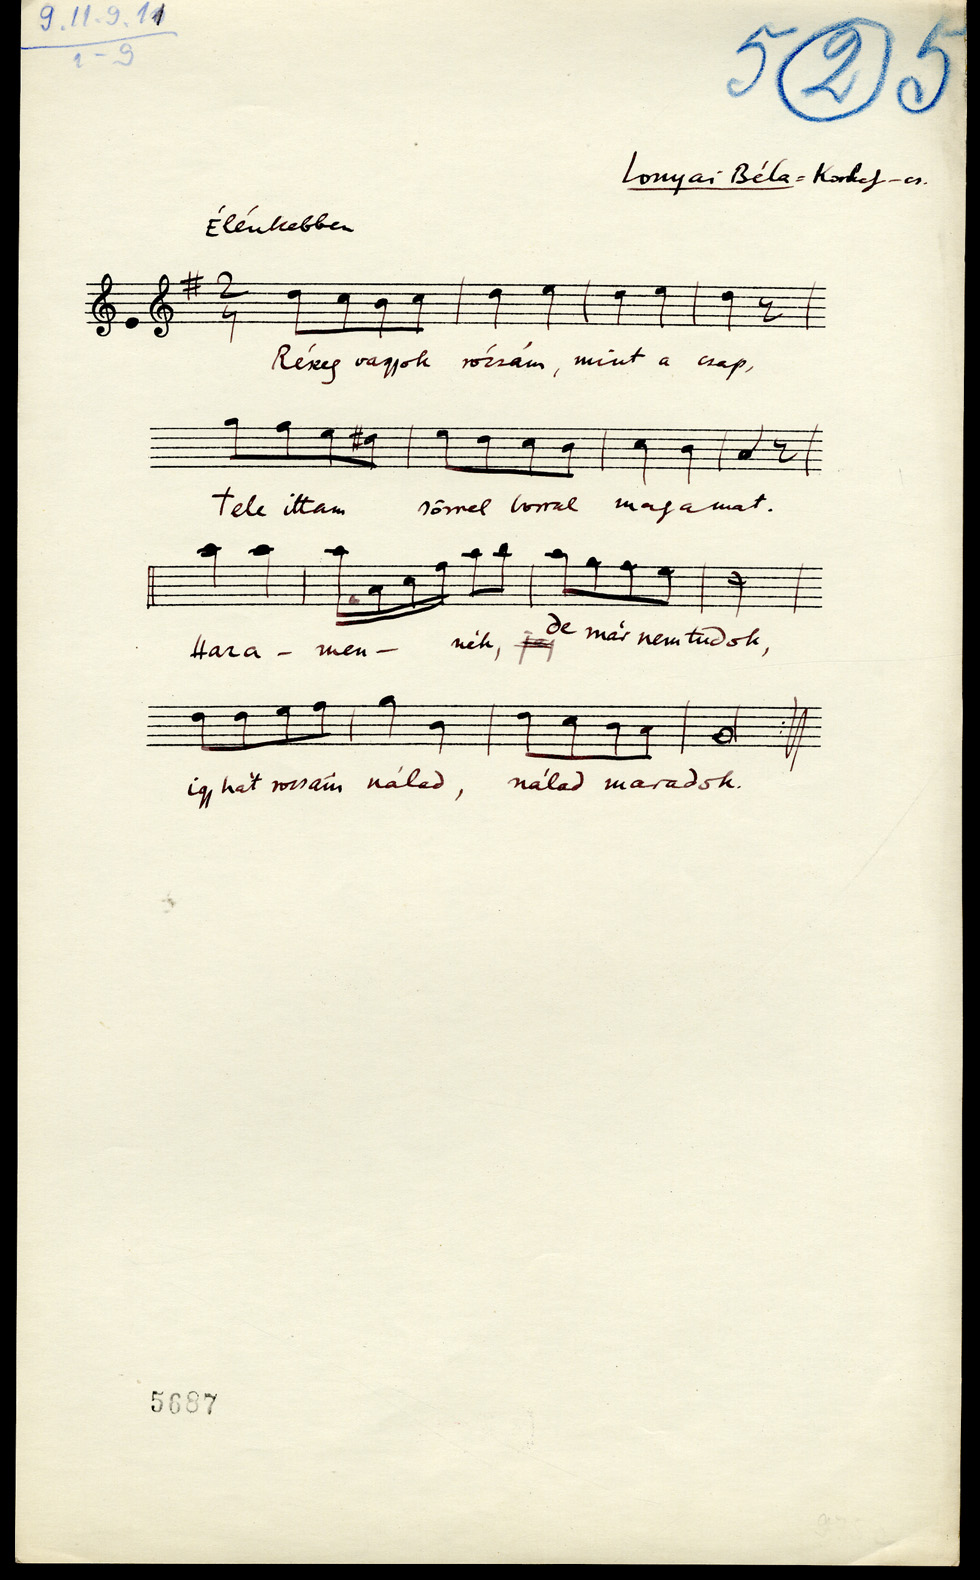 9.11.9.11
1-9
5 2 5
Lonyai Béla =
Élénkebben
2
4
Részeg vagyok rózsám, mint a csap,
Tele ittam sörrel borral magamat.
Haza - men - nék, de már nem tudok,
így hát rozsám nálad, nálad maradok.
5687